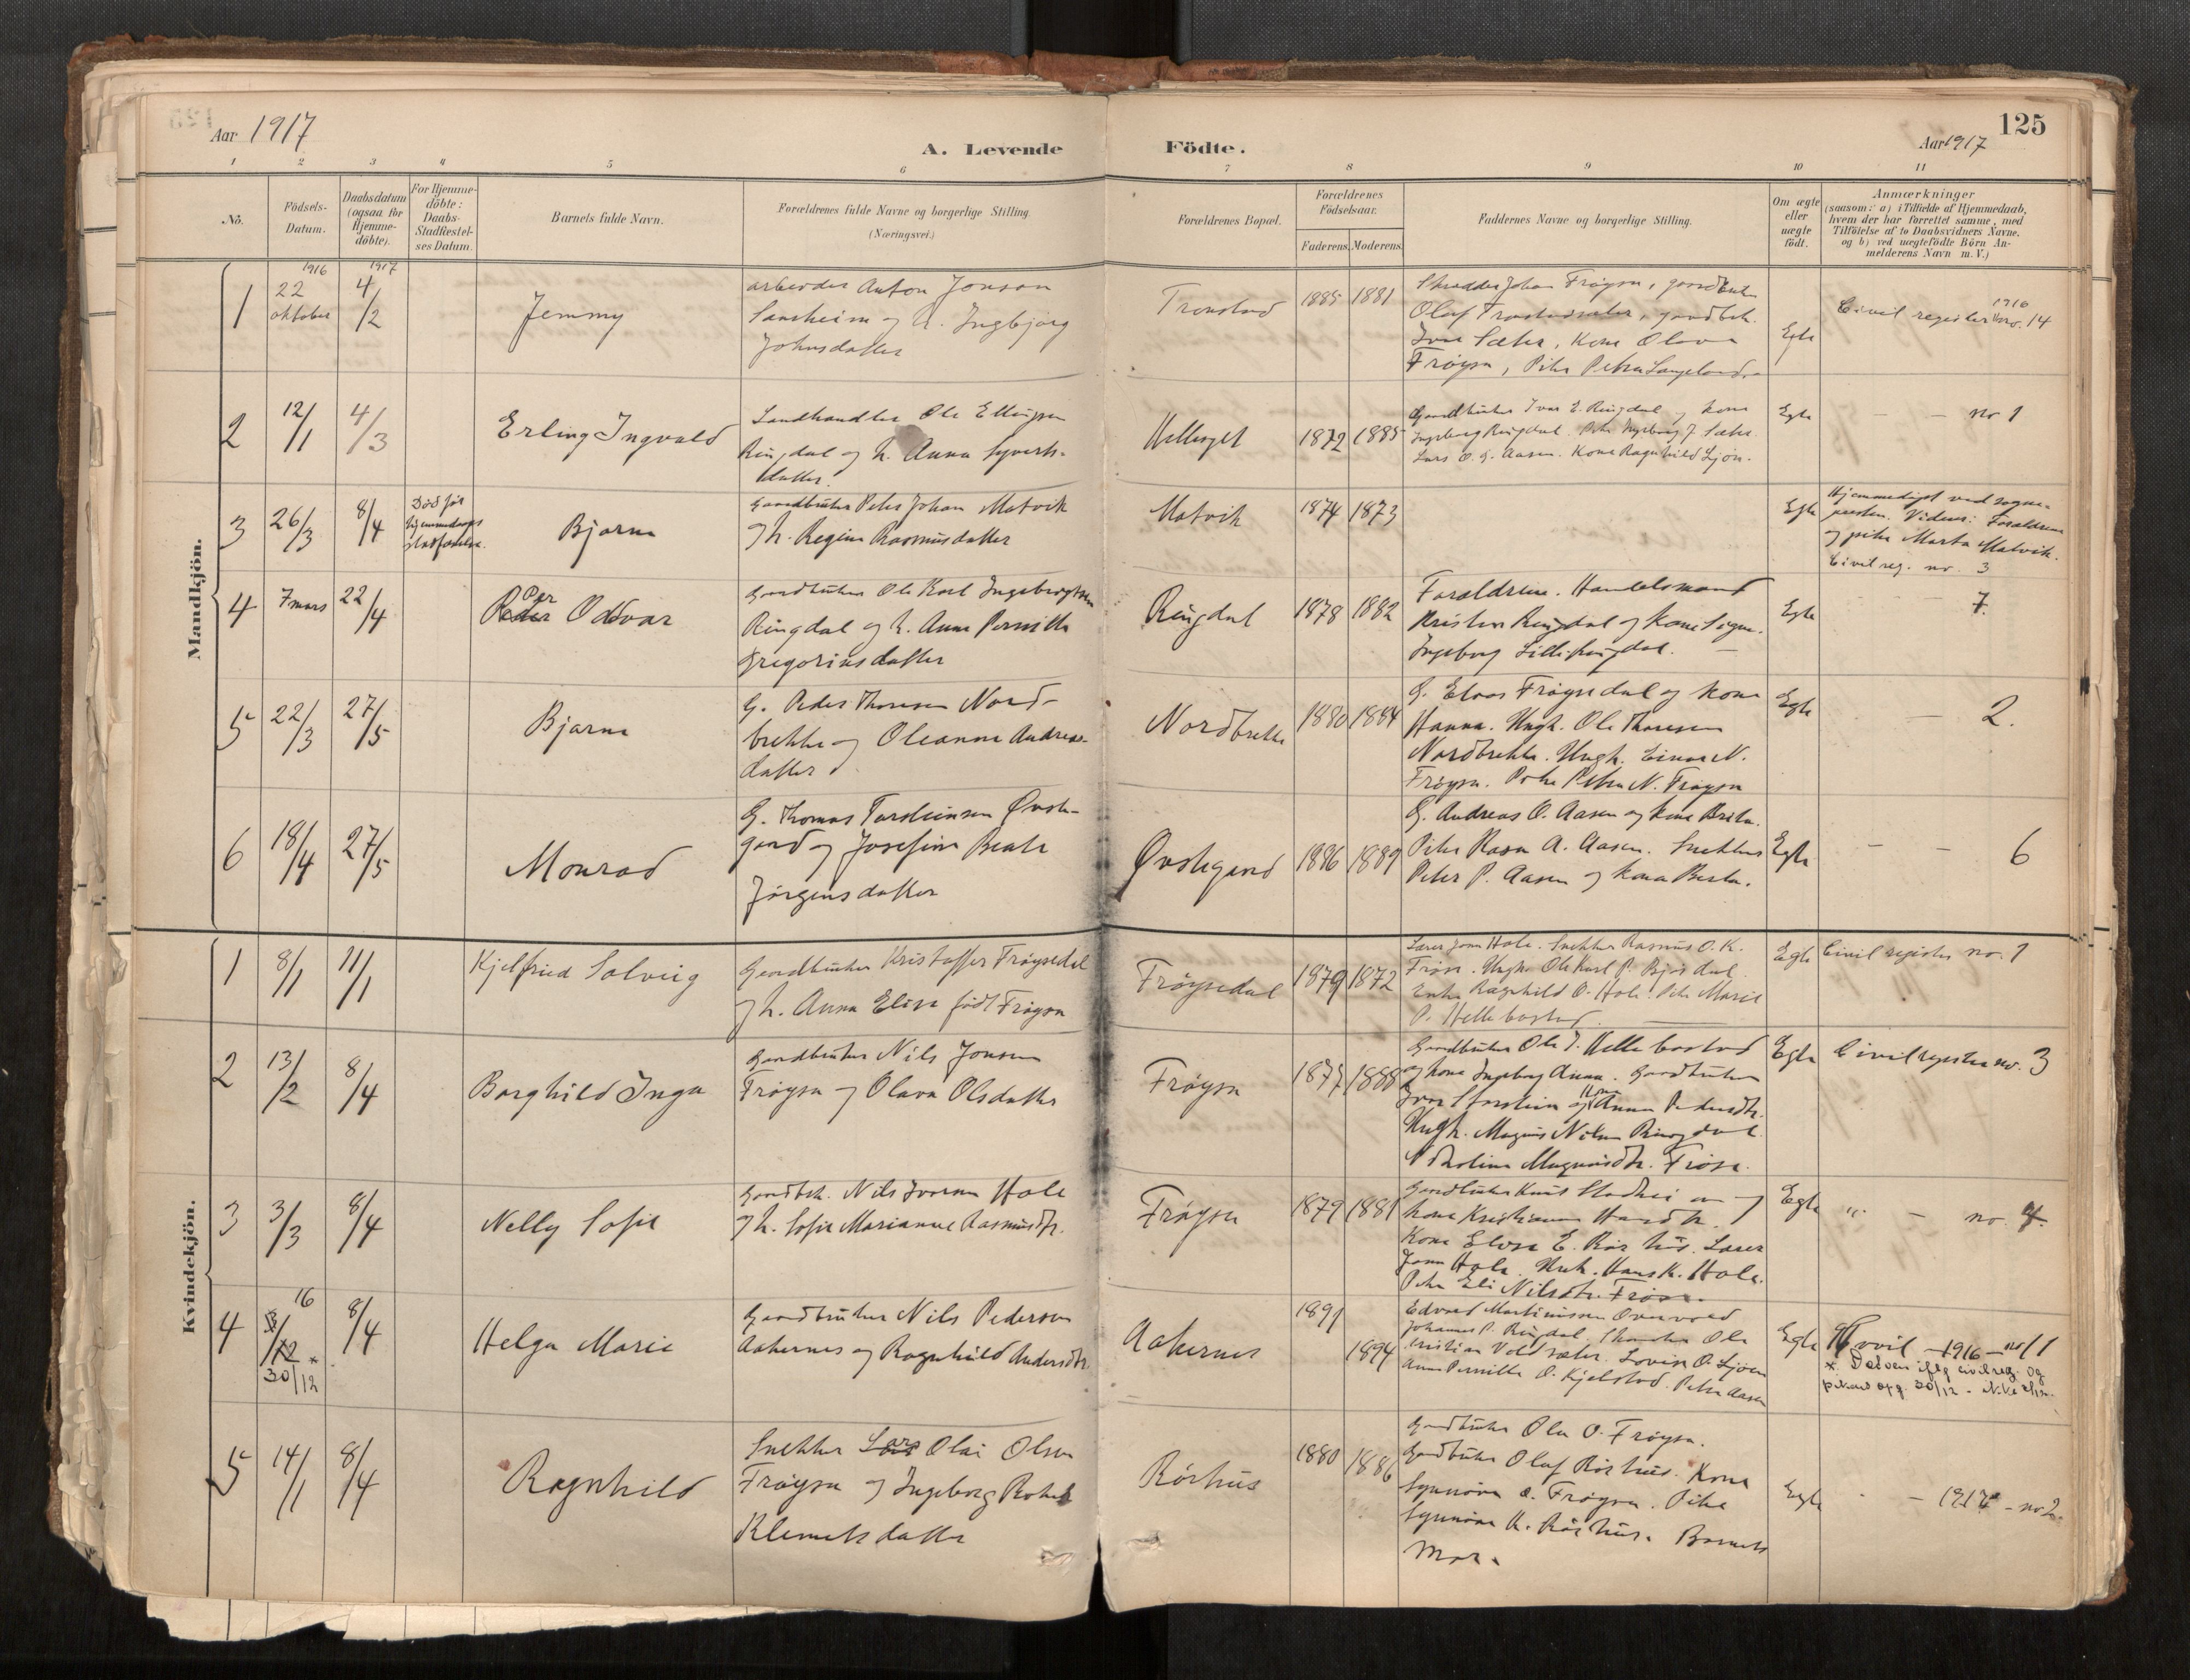 125
Aar 1917
A. Levende Födte.
Aar 1917
1 2 3 4 5 6 7 8 9 10 11
No.
Födsels-
Datum.
Daabsdatum
(ogsaa for
Hjemme-
döbte).
For Hjemme-
döbte:
Daabs-
Stadfæstel-
ses Datum.
Barnets fulde Navn.
Forældrenes fulde Navne og borgerlige Stilling.
(Næringsvei.)
Forældrenes Bopæl.
Forældrenes
Födselsaar.
Faderens. Moderens.
Faddernes Navne og borgerlige Stilling.
Om ægte
eller
uægte
födt.
Anmærkninger
(saasom: a) i Tilfælde af Hjemmedaab,
hvem der har forrettet samme, med
Tilföielse af to Daabsvidners Navne.
og b) ved uægtefödte Börn An-
melderens Navn m. V.)
Mandkjön.
1
1916
22
oktober
1917
4/2
Jemmy
arbeider Anton Jonson
og h. Ingbjørg
Johnsdatter
Tronstad
1885 1881
Skrædder Johan Frøysa, gaardbruker
Olaf Tronstadsæter, gaardbr.
Ivar Sæter, Kone Olava
Frøysa, Pike Petra Langeland
Egte
Civil register 1916 no. 14
2
12/1
4/3
Erling Ingvald
Landhandler Ole Ellingsen
Ringdal og h. Anna Syverts-
datter.
1872 1885
Gaardbruker Ivar E. Ringdal og kone
Ingeborg Ringdal. Pike Ingeborg J. Sæter
Lars O. G. Aasen. Kone Ragnhild Ljøen.
Egte
— — no 1
3
26/3
8/4
Død før
hjemmedaaps
stadfæstelse.
Bjarne
Gaardbruker Peter Johan Matvik
og h. Regine Rasmusdatter
Matvik
1874 1873
Egte
Hjemmedøpt ved sogne-
presten. Vidner: Forældrene
og pike Marta Matvik.
Civil reg. no. 3
4
7 mars
22/4
Peder Per Oddvar
Gaardbruker Ole Karl Ingebrigtsen
Ringdal og h. Anna Pernille
Gregoriusdatter
Ringdal
1878 1882
Forældrene. Handelsmand
Kristen Ringdal og kone Signe.
Ingeborg Lilli Ringdal. —
Egte
7.
5
22/3
27/5
Bjarne
G. Peder Thoresen Nord-
brekke og Oleanna Andreas-
datter
Nordbrekke
1880 1884
G. Elias Frøysedal og kone
Hanna. Ungk. Ole Thoresen
Nordbrekke. Ungk. Einar N.
Frøysa. Pike Petra N. Frøysa
Egte
— 2.
6
18/4
27/5
Monrad
G. Thomas Torsteinsen Øvste-
gard og Josefine Beate
Jørgensdatter
Øvstegard
1886 1889
G. Andreas O. Aasen og kone Brita.
Pike Rasa A. Aasen. Snekker
Peter P. Aasen og kona Berta.
Egte
— — 6
Kvindekjön.
1
8/1
11/1
Kjelfried Solveig
Gaardbruker Kristoffer Frøysedal
og h. Anna Elise født Frøysa
Frøysedal
1879 1872
Lærer Jonn Hole. Snekker Rasmus O. K.
Frøse. Ungk. Ole Karl P. Bjørdal
Enke Ragnhild O. Hole. Pike Marie
P. Hellebostad.
Egte
Civil register no. 1
2
13/2
8/4
Borghild Inga
Gaardbruker Nils Jonsen
Frøysa og Olava Olsdatter
Frøysa
1888
Gaardbruker Ole J. Hellebostad
og kone Ingeborg Anna. Gaardbruker
Ivar Storstein og kone Anna Pedersdtr.
Ungk. Magnus Nilsen Ringdal
Nikoline Magnusdtr. Frøse.
Egte
Civilregister no. 3
3
3/3
8/4
Nelly Sofie
Gaardbr. Nils Iversen Hole
og h. Sofie Marianne Rasmusdtr.
Frøysa
1879 1881
Gaardbruker Knut og
kone Kristianne
Kone Elise E. Rørhus. Lærer
Jonn Hole. Ungk. Hans K. Hole.
Pike Eli Nilsdtr. Frøse.
Egte
" — no. 4.
4
16
3/12 *
30/12
8/4
Helga Marie
Gaardbruker Nils Pedersen
Aakernes og Ragnhild Andersdtr.
Aakernes
1891
1894
Edvard Martinussen Overvold
Johannes P. Ringdal. Ole
Kristian Voldsæter. Lovise O. Ljøen
Anna Pernille O. Kjelstad. Petra Aasen
Egte
Civil — 1916 — no 11
* Datoen iflg civilreg. og
opg. 30/12 - ikke 3/12.
5
14/1
8/4
Ragnhild
Snekker Lars Olai Olsen
Frøysa og Ingeborg Rakel
Klemetsdatter
Rørhus
1880 1886
Gaardbruker Ola O. Frøysa.
Gaardbruker Olaf Rørhus. Kona
Synnøva O. Frøysa. Pike
Synnøva K. Rørhus. Barnets
Mor.
Egte
— 1917 - no 2.